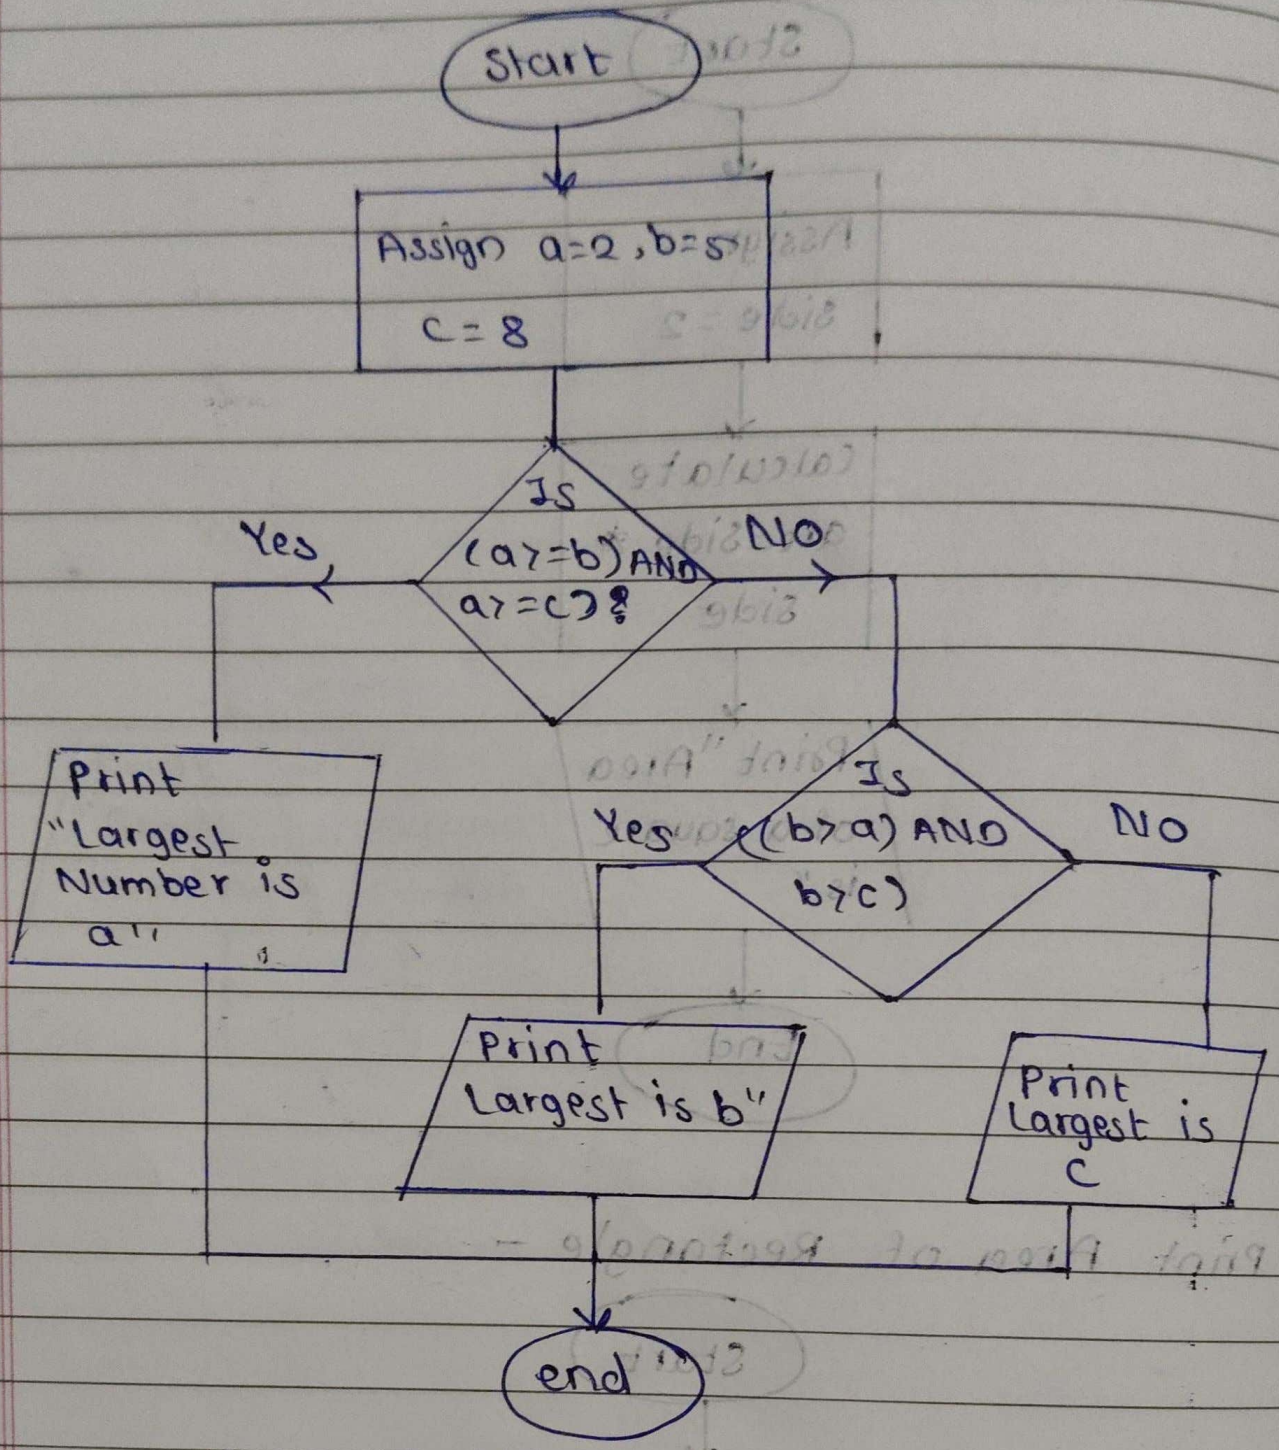 Start
Assign a=2, b=5
c=8
Is
(a>=b) AND
a>=c)?
Yes
NO
Print
"Largest
Number is
a"
Is
((b>a) AND
b>c)
Yes
NO
Print
Largest is b"
Print
Largest is
C
end